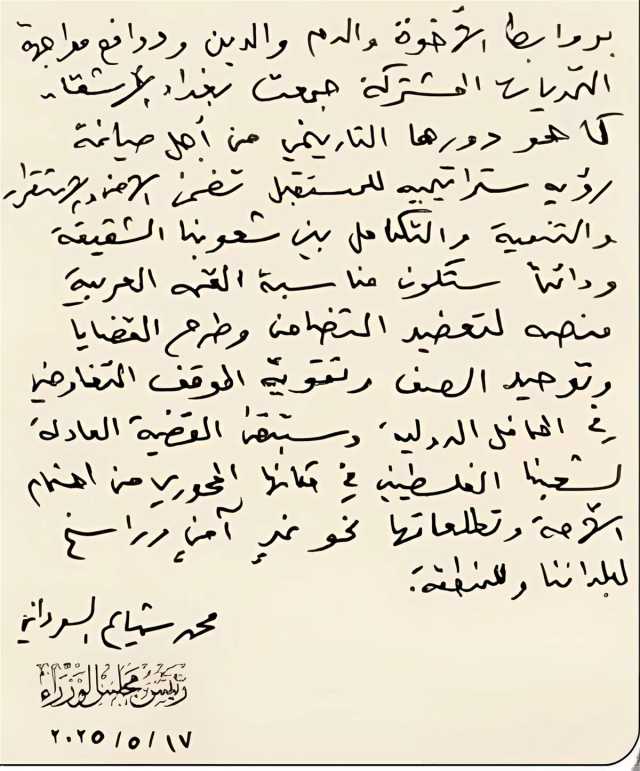 بروابط الأخوة والدم والدين ودوافع مواجهة
التحديات المشتركة جمعت بغداد الأشقاء
كما هو دورها التاريخي من أجل صياغة
رؤيه ستراتيجيه للمستقبل تضمن الأمن والاستقرار
والتنمية والتكامل بين شعوبنا الشقيقة
ودائماً ستكون مناسبة القمه العربية
منصه لتعضيد التضامن وطرح القضايا
وتوحيد الصف وتقوية الموقف التفاوضي
في المحافل الدوليه، وستبقى القضية العادلة
لشعبنا الفلسطيني في مكانها المحوري من اهتمام
الأمة وتطلعاتها نحو غدٍ آمنٍ وراسخ
لبلداننا وللمنطقة.
محمد شياع السوداني
رئيس مجلس الوزراء
٢٠٢٥/٥/١٧